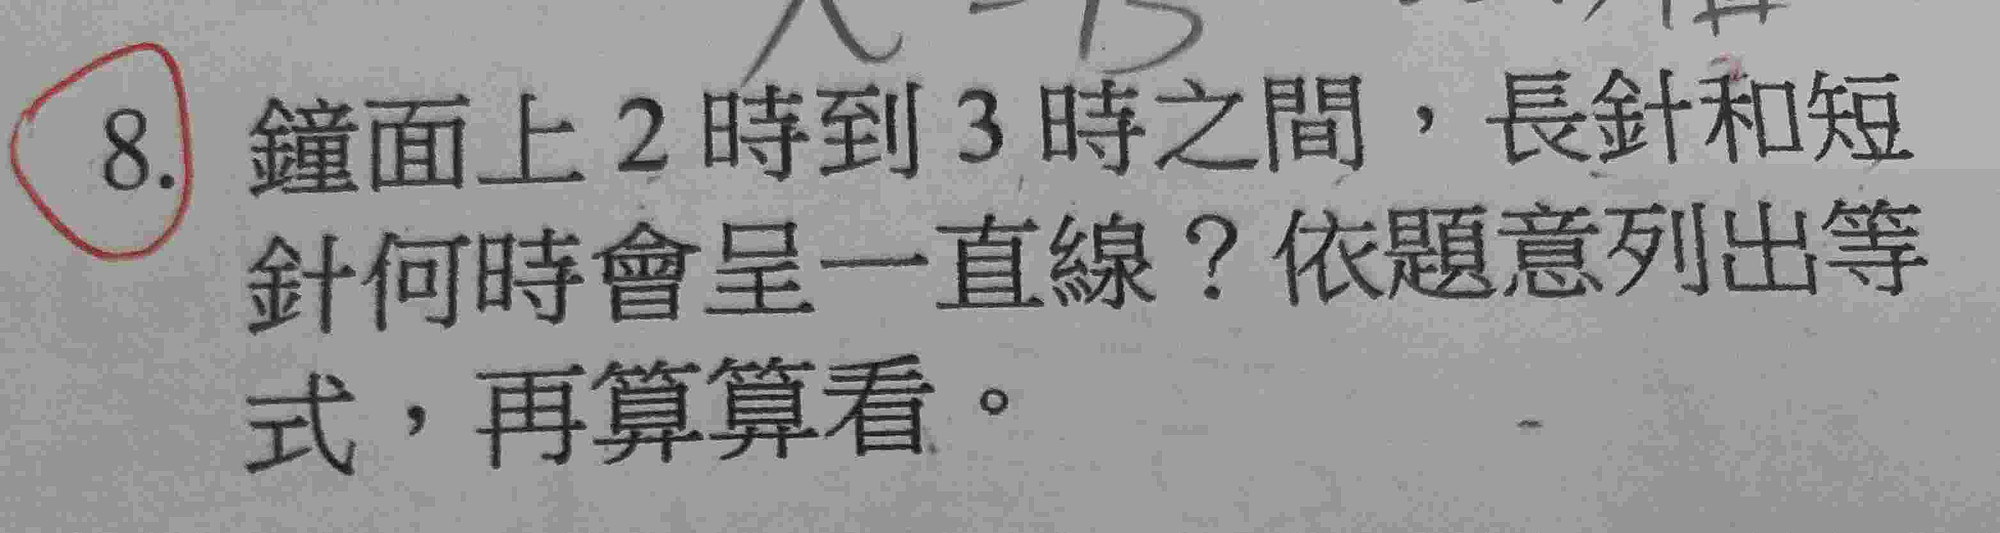 8. 鐘面上2時到3時之間，長針和短
針何時會呈一直線？依題意列出等
式，再算算看。